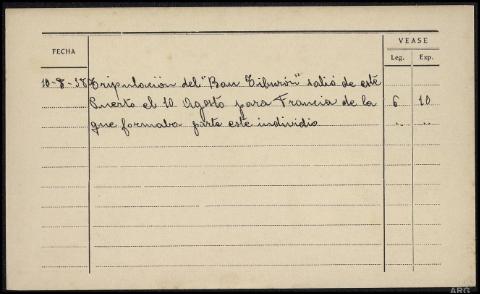 VEASE
FECHA
Leg. Exp.
10-8-38 Tripulación del "Bou Tiburón" salió de este
Puerto el 10 Agosto para Francia de la 6 10
que formaba parte este individio " "
ARG